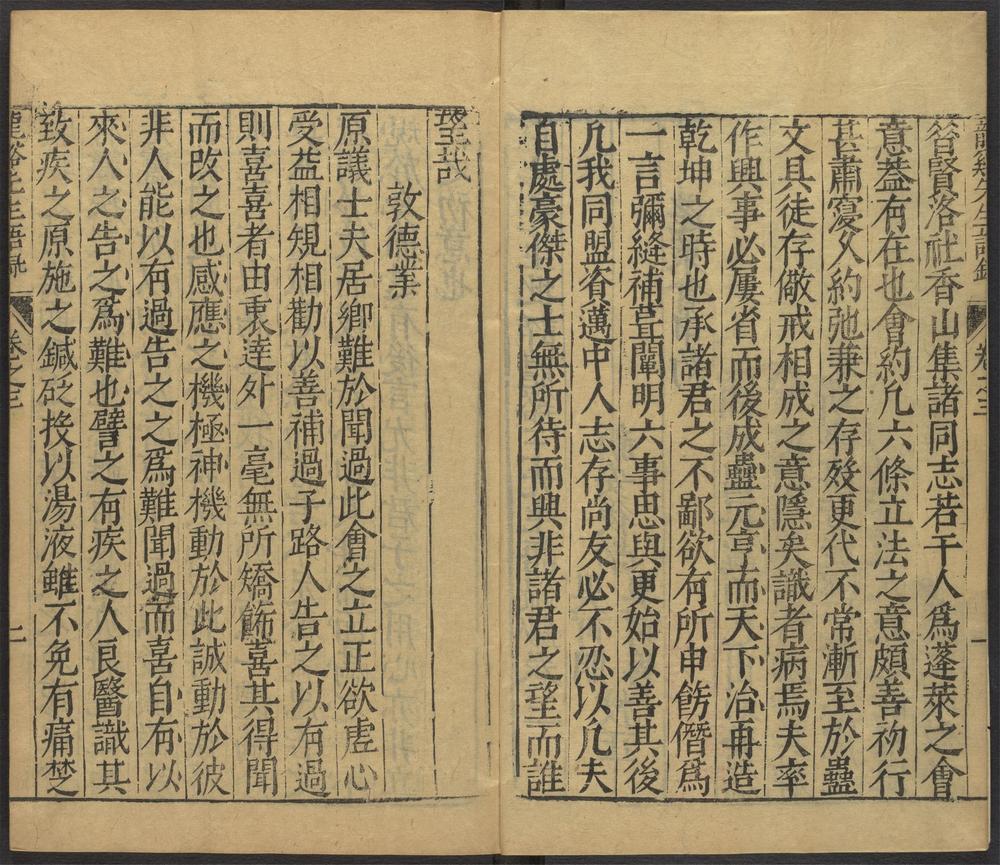 龍谿先生語錄 卷之三 一
答賢洛社香山集諸同志若干人爲蓬萊之會
意蓋有在也會約凡六條立法之意頗善初行
甚肅寖久約弛兼之存歿更代不常漸至於蠱
文具徒存儆戒相成之意隱矣識者病焉夫率
作興事必屢省而後成蠱元亨而天下治再造
乾坤之時也承諸君之不鄙欲有所申飭僭爲
一言彌縫補葺闡明六事思與更始以善其後
凡我同盟資邁中人志存尚友必不忍以凡夫
自處豪傑之士無所待而興非諸君之望而誰
望哉
敦德業
原議士夫居鄉難於聞過此會之立正欲虛心
受益相規相勸以善補過子路人告之以有過
則喜喜者由衷達外一毫無所矯飾喜其得聞
而改之也感應之機極神機動於此誠動於彼
非人能以有過告之之爲難聞過而喜自有以
來人之告之爲難也譬之有疾之人良醫識其
致疾之原施之鍼砭投以湯液雖不免有痛楚
龍谿先生語錄 卷之三 二